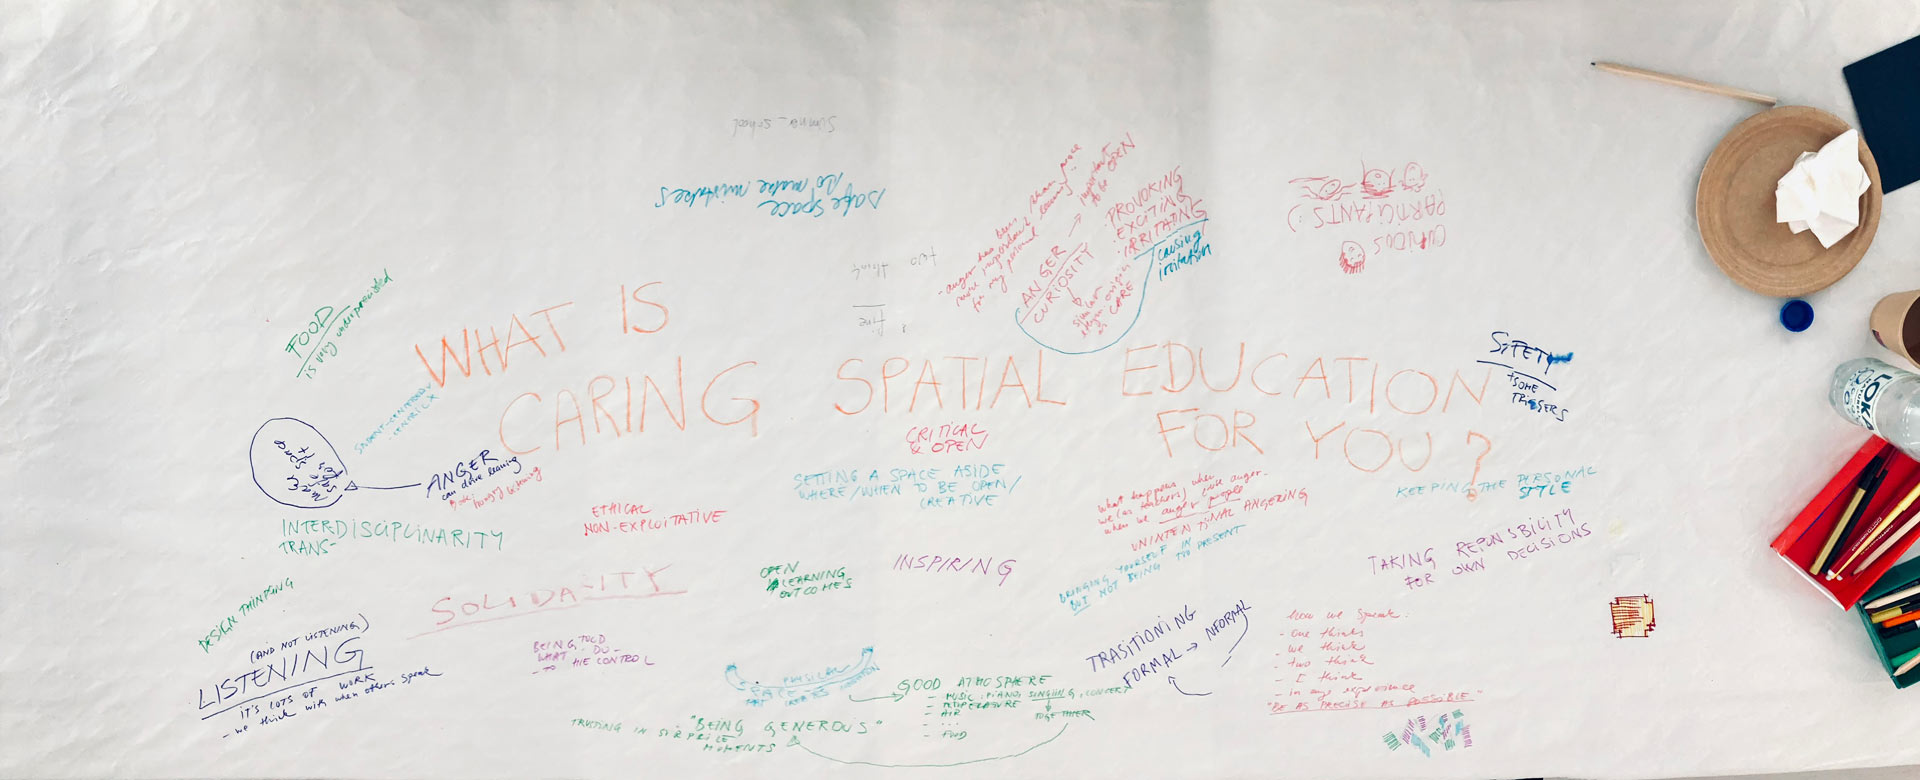 Summer school
safe space
to make mistakes
- anger has been
more important than
for my personal learning
more
→ important
to be OPEN
ANGER
CURIOSITY
similar
origin
as CARE
PROVOKING
EXCITING
IRRITATING
causing/
irritation
CURIOS
PARTICIPANTS :)
two
think
fine
FOOD
is very underpreciated
WHAT IS
CARING SPATIAL EDUCATION
FOR YOU?
SAFETY
+SOME
TRIGGERS
STUDENT-CENTERED
-CENTRICX
space
ANGER
can drive learning
hungry listening
CRITICAL
& OPEN
SETTING A SPACE ASIDE
WHERE/WHEN TO BE OPEN/
CREATIVE
What happens when
we (as teachers) invite anger.
when we anger people
UNINTENTINAL ANGERING
KEEPING THE PERSONAL
STYLE
INTERDISCIPLINARITY
TRANS-
ETHICAL
NON-EXPLOITATIVE
TAKING REPONSIBILITY
FOR OWN DECISIONS
BRINGING YOURSELF IN
BUT NOT BEING TOO PRESENT
OPEN
LEARNING
OUTCOMES
INSPIRING
DESIGN THINKING
SOLIDA-ITY
(AND NOT LISTENING)
LISTENING
- IT'S LOTS OF WORK
- we think with when others speak
BEING TOLD
WHAT - DO -
- TO THE CONTROL
TRASITIONING
FORMAL → NFORMAL
how we speak:
- one thinks
- we think
- two think
- I think
- in my experience
"BE AS PRECISE AS POSSIBLE"
PHYSICAL
GOOD ATHOSPHERE
- MUSIC: PIANO, SINGUING, CONCERT
- TEMPERASURE
- AIR
- ...
- FOOD
TOGETHER
"BEING GENEROUS"
TRUSTING IN SURPRICE
MOMENTS
LOKA